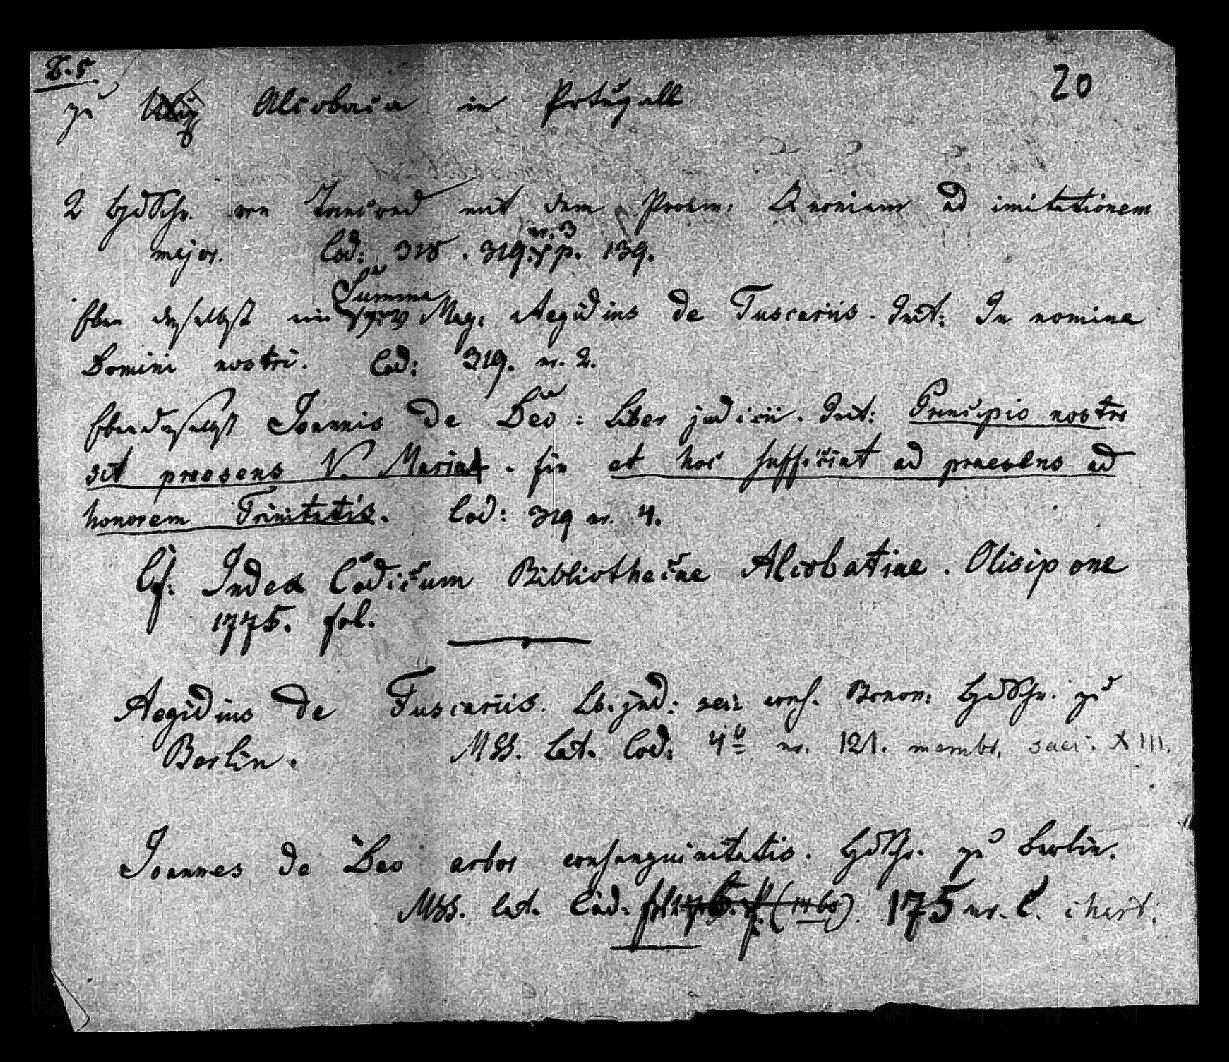 20
zu Alcobaca in Portugall
2 HdSchr. von Tancred mit dem Prooem: Quoniam ad imitationem
major. Cod: 318. 319. nr. 3 p. 139.
Eben daselbst ein Summa Mag: Aegidius de Fuscariis. Init: In nomine
Domini nostri. Cod: 319. nr. 2.
Ebendaselbst Joannis de Deo: Liber judicii. Init: Principio nostro
sit praesens V. Maria. fin et hoc sufficiat ad praesens ad
honorem Trinitatis. Cod: 319 nr. 4.
Cf. Index Codicum Bibliothecae Alcobatiae. Olisipone
1775. fol.
Aegidius de Fuscariis. Lb. jud: Bonon: HdSchr. zu
Berlin. MSS. Lat. Cod: 4to nr. 121. membr. saec. XIII.
Joannes de Deo arbor consanguinitatis. HdSchr. zu Berlin.
MSS. lat. Cod. 175 nr. chart.